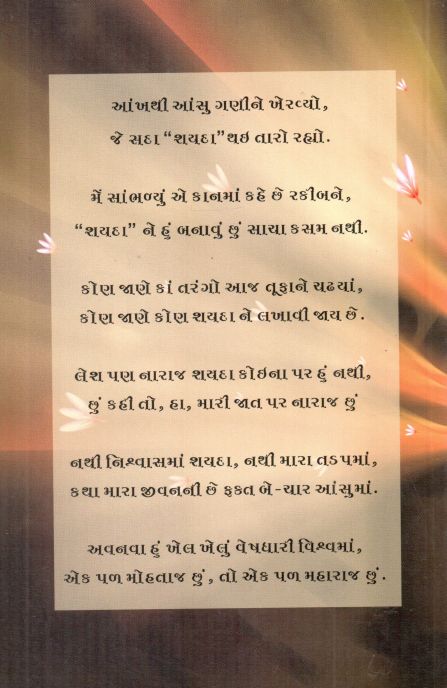 આંખથી આંસુ ગણીને ખેરવ્યો,
જે સદા “શયદા” થઇ તારો રહ્યો.
મેં સાંભળ્યું એ કાનમાં કહે છે રકીબને,
“શયદા” ને હું બનાવું છું સાચા કસમ નથી.
કોણ જાણે કાં તરંગો આજ તૂફાને ચઢયાં,
કોણ જાણે કોણ શયદા ને લખાવી જાય છે.
લેશ પણ નારાજ શયદા કોઇના પર હું નથી,
છું કહી તો, હા, મારી જાત પર નારાજ છું
નથી નિશ્વાસમાં શયદા, નથી મારા તડપમાં,
કથા મારા જીવનની છે ફકત બે-ચાર આંસુમાં.
અવનવા હું ખેલ ખેલું વેષધારી વિશ્વમાં,
એક પળ મોહતાજ છું, તો એક પળ મહારાજ છું.